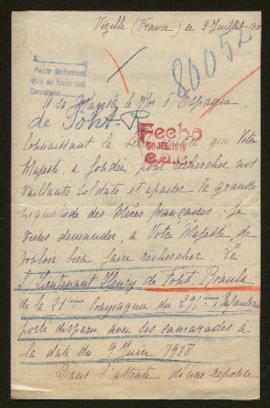 Vizille (France) ce 3 Juillet 19
80052
A Sa Majesté le Roi d'Espagne
de Font-R
Fecho
JUL 1918
Connaissant la que Votre
Majesté, a fondée pour rechercher nos
vaillants soldats et apaiser la grande
inquiétude des Mères françaises, je
viens demander, à Votre Majesté, de
vouloir bien faire rechercher le
Lieutenant Henry de Font-Réaulx
de la 21ème Compagnie du 291ème Infanterie
porté disparu avec ses camarades à
la date du 9 Juin 1918
Dans l'attente d'une réponse